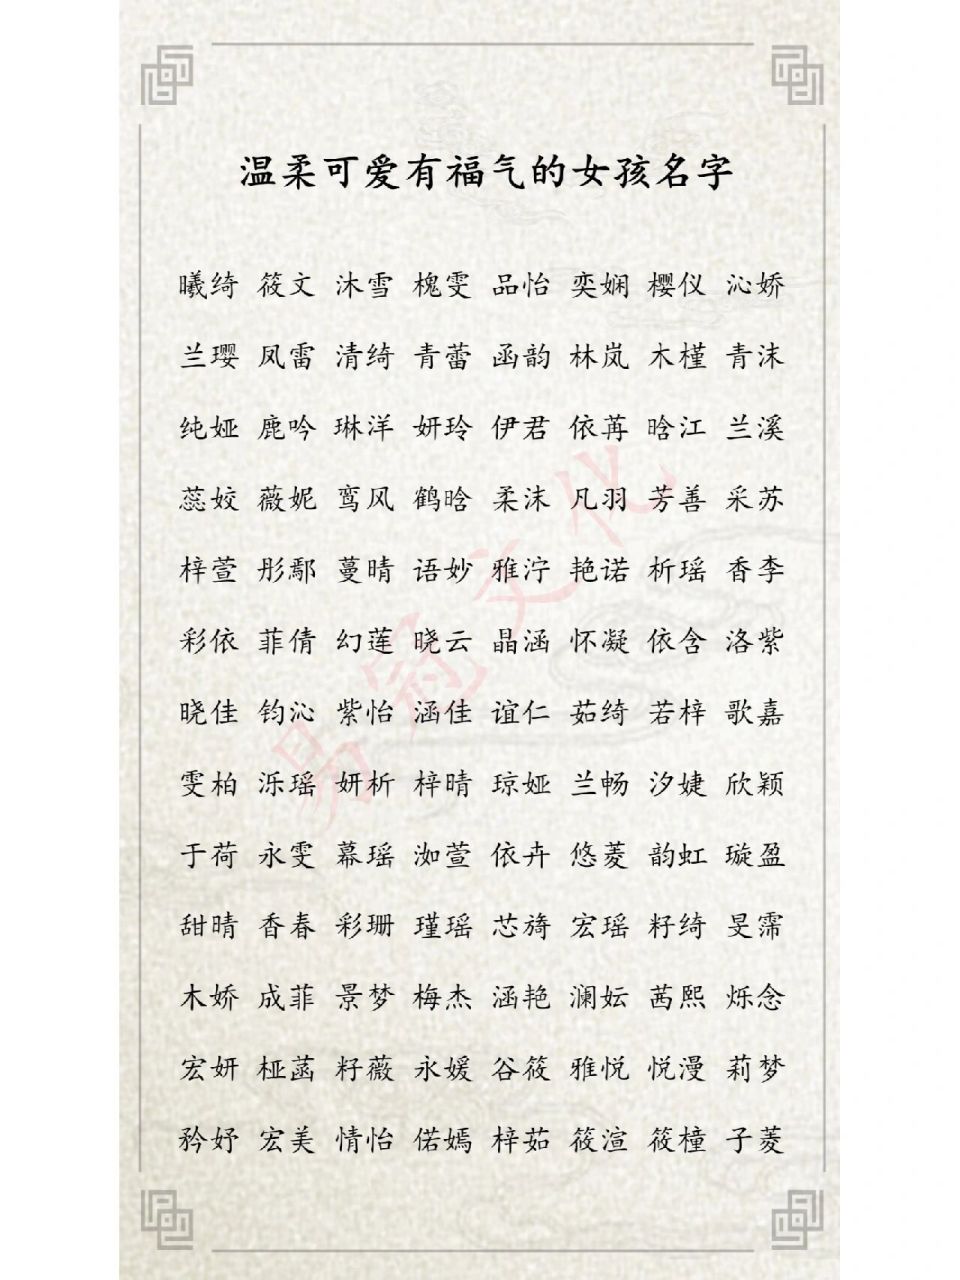 温柔可爱有福气的女孩名字
曦绮 筱文 沐雪 槐雯 品怡 奕娴 樱仪 沁娇
兰璎 凤雷 清绮 青蕾 函韵 林岚 木槿 青沫
纯娅 鹿吟 琳洋 妍玲 伊君 依苒 晗江 兰溪
蕊姣 薇妮 鸾风 鹤晗 柔沫 凡羽 芳善 采苏
梓萱 彤鄢 蔓晴 语妙 雅泞 艳诺 析瑶 香李
彩依 菲倩 幻莲 晓云 晶涵 怀凝 依含 洛紫
晓佳 钧沁 紫怡 涵佳 谊仁 茹绮 若梓 歌嘉
雯柏 泺瑶 妍析 梓晴 琼娅 兰畅 汐婕 欣颖
于荷 永雯 幕瑶 洳萱 依卉 悠菱 韵虹 璇盈
甜晴 香春 彩珊 瑾瑶 芯旖 宏瑶 籽绮 旻霈
木娇 成菲 景梦 梅杰 涵艳 澜妘 茜熙 烁念
宏妍 桠菡 籽薇 永媛 谷筱 雅悦 悦漫 莉梦
矜妤 宏美 情怡 偌嫣 梓茹 筱渲 筱橦 子菱
易冠文化